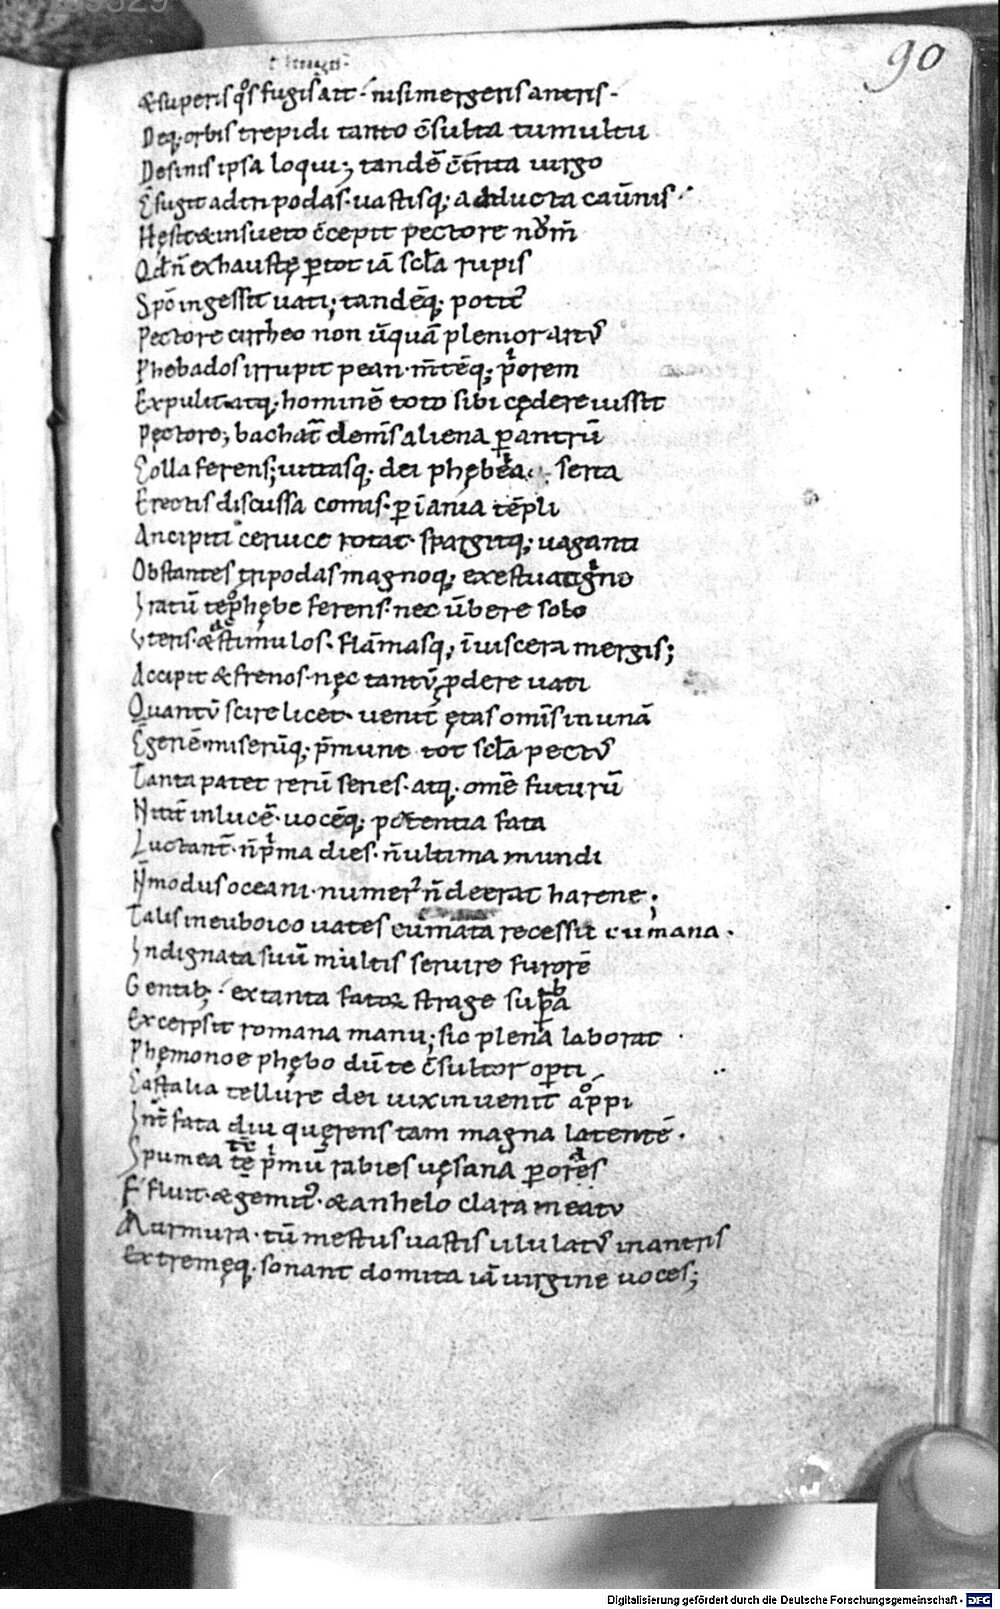 90
&superis q̊s fugis ait · nisi mergeris antris ·
Deq; orbis trepidi tanto c̄sulta tumultu
Desinis ipsa loqui; tandē c̄t̄rita uirgo
C̄fugit adtripodas · uastisq; adducta cau̅nis ·
Hęsit & insueto c̄cepit pectore nōm̄
Qd̄ n̄ exhaustę p̱ tot iā scl̄a rupis
Sp̄s ingessit uati; tandēq; potit᷑
Pectore cirrheo non ūquā plenior artᷤ
Phebados irrupit pean · m̄tēq; p̓orem
Expulit · atq; hominē toto sibi cędere iussit
Pęctore; bachat᷑ dem̄s aliena p̱ antrū
Colla ferens; uittasq; dei phębea serta
Erectis discussa comis · p̱ īania tēpli
Ancipiti ceruice rotat · spargitq; uaganti
Obstantes tripodas magnoq; exestuat igne
Iratū te phębe ferens · nec ūbere solo
Vteris · & stimulos · flāmasq; ī uiscera mergis;
Accipit & frenos · nęc tantū ꝓdere uati
Quantū scire licet · uenit ętas om̄is in unā
C̄geriē · miserūq; p̄munt tot scl̄a pectᷤ
Tanta patet rerū series · atq; om̄e futurū
Nitit᷑ in lucē · uocēq; petentia fata
Luctant᷑ · n̄ p̓ma dies · n̄ ultima mundi
N̄ modus oceani · numer᷒ n̄ deerat harene;
Talis in euboico uates cumata recessit cumana ·
Indignata suū multis seruire furorē
Gentib; · ex tanta fatoꝝ strage sup̱ba
Excerpsit romana manu; sic plena laborat
Phęmonoe phębo dū te c̄sultor op̱ti
Castalia tellure dei uix inuenit appi
Int̄ fata diu quęrens tam magna latentē ·
Spumea tc̄ p̓mū rabies uęsana p̱ ora
Effluit · & gemit᷒ · & anhelo clara meatᷤ
Murmura · tū męstus uastis ululatᷤ in antris
Extremęq; sonant domita iā uirgine uoces;
Digitalisierung gefördert durch die Deutsche Forschungsgemeinschaft - DFG